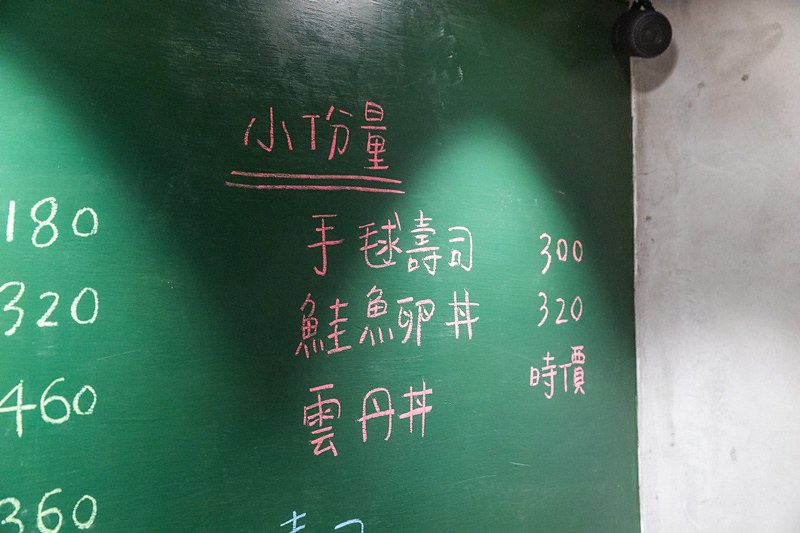 小份量
手毬壽司 300
鮭魚卵丼 320
雲丹丼 時價
180
320
460
360